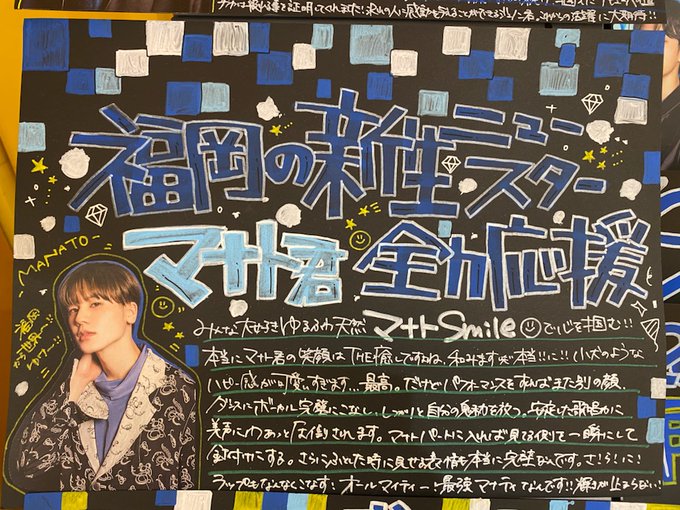 大期待!!
福岡の新生ニュースター
マナト君 全力応援
MANATO
福岡
から世界へ!!
みんな大好きゆるふわ天然 マナトSmile で心を掴む!!
本当にマナト君の笑顔は THE癒しですね、和みます 本当!!に!!小犬のような
ハピー感が可愛いすぎます、最高。だけどパフォーマンスをすればまた別の顔、
ダンスにボーカル完璧にこなし、しっかりと自分の魅力を放つ。安定した歌唱力に
美声にわあっと圧倒されます。マナトパートに入れば見てる側を一瞬にして
全て にする。さらにふとした時に見せる表情も本当に完璧なんです。さらに!
ラップもなんなくこなす!オールマイティー!最強マナティなんです!!輝きが止まらない!